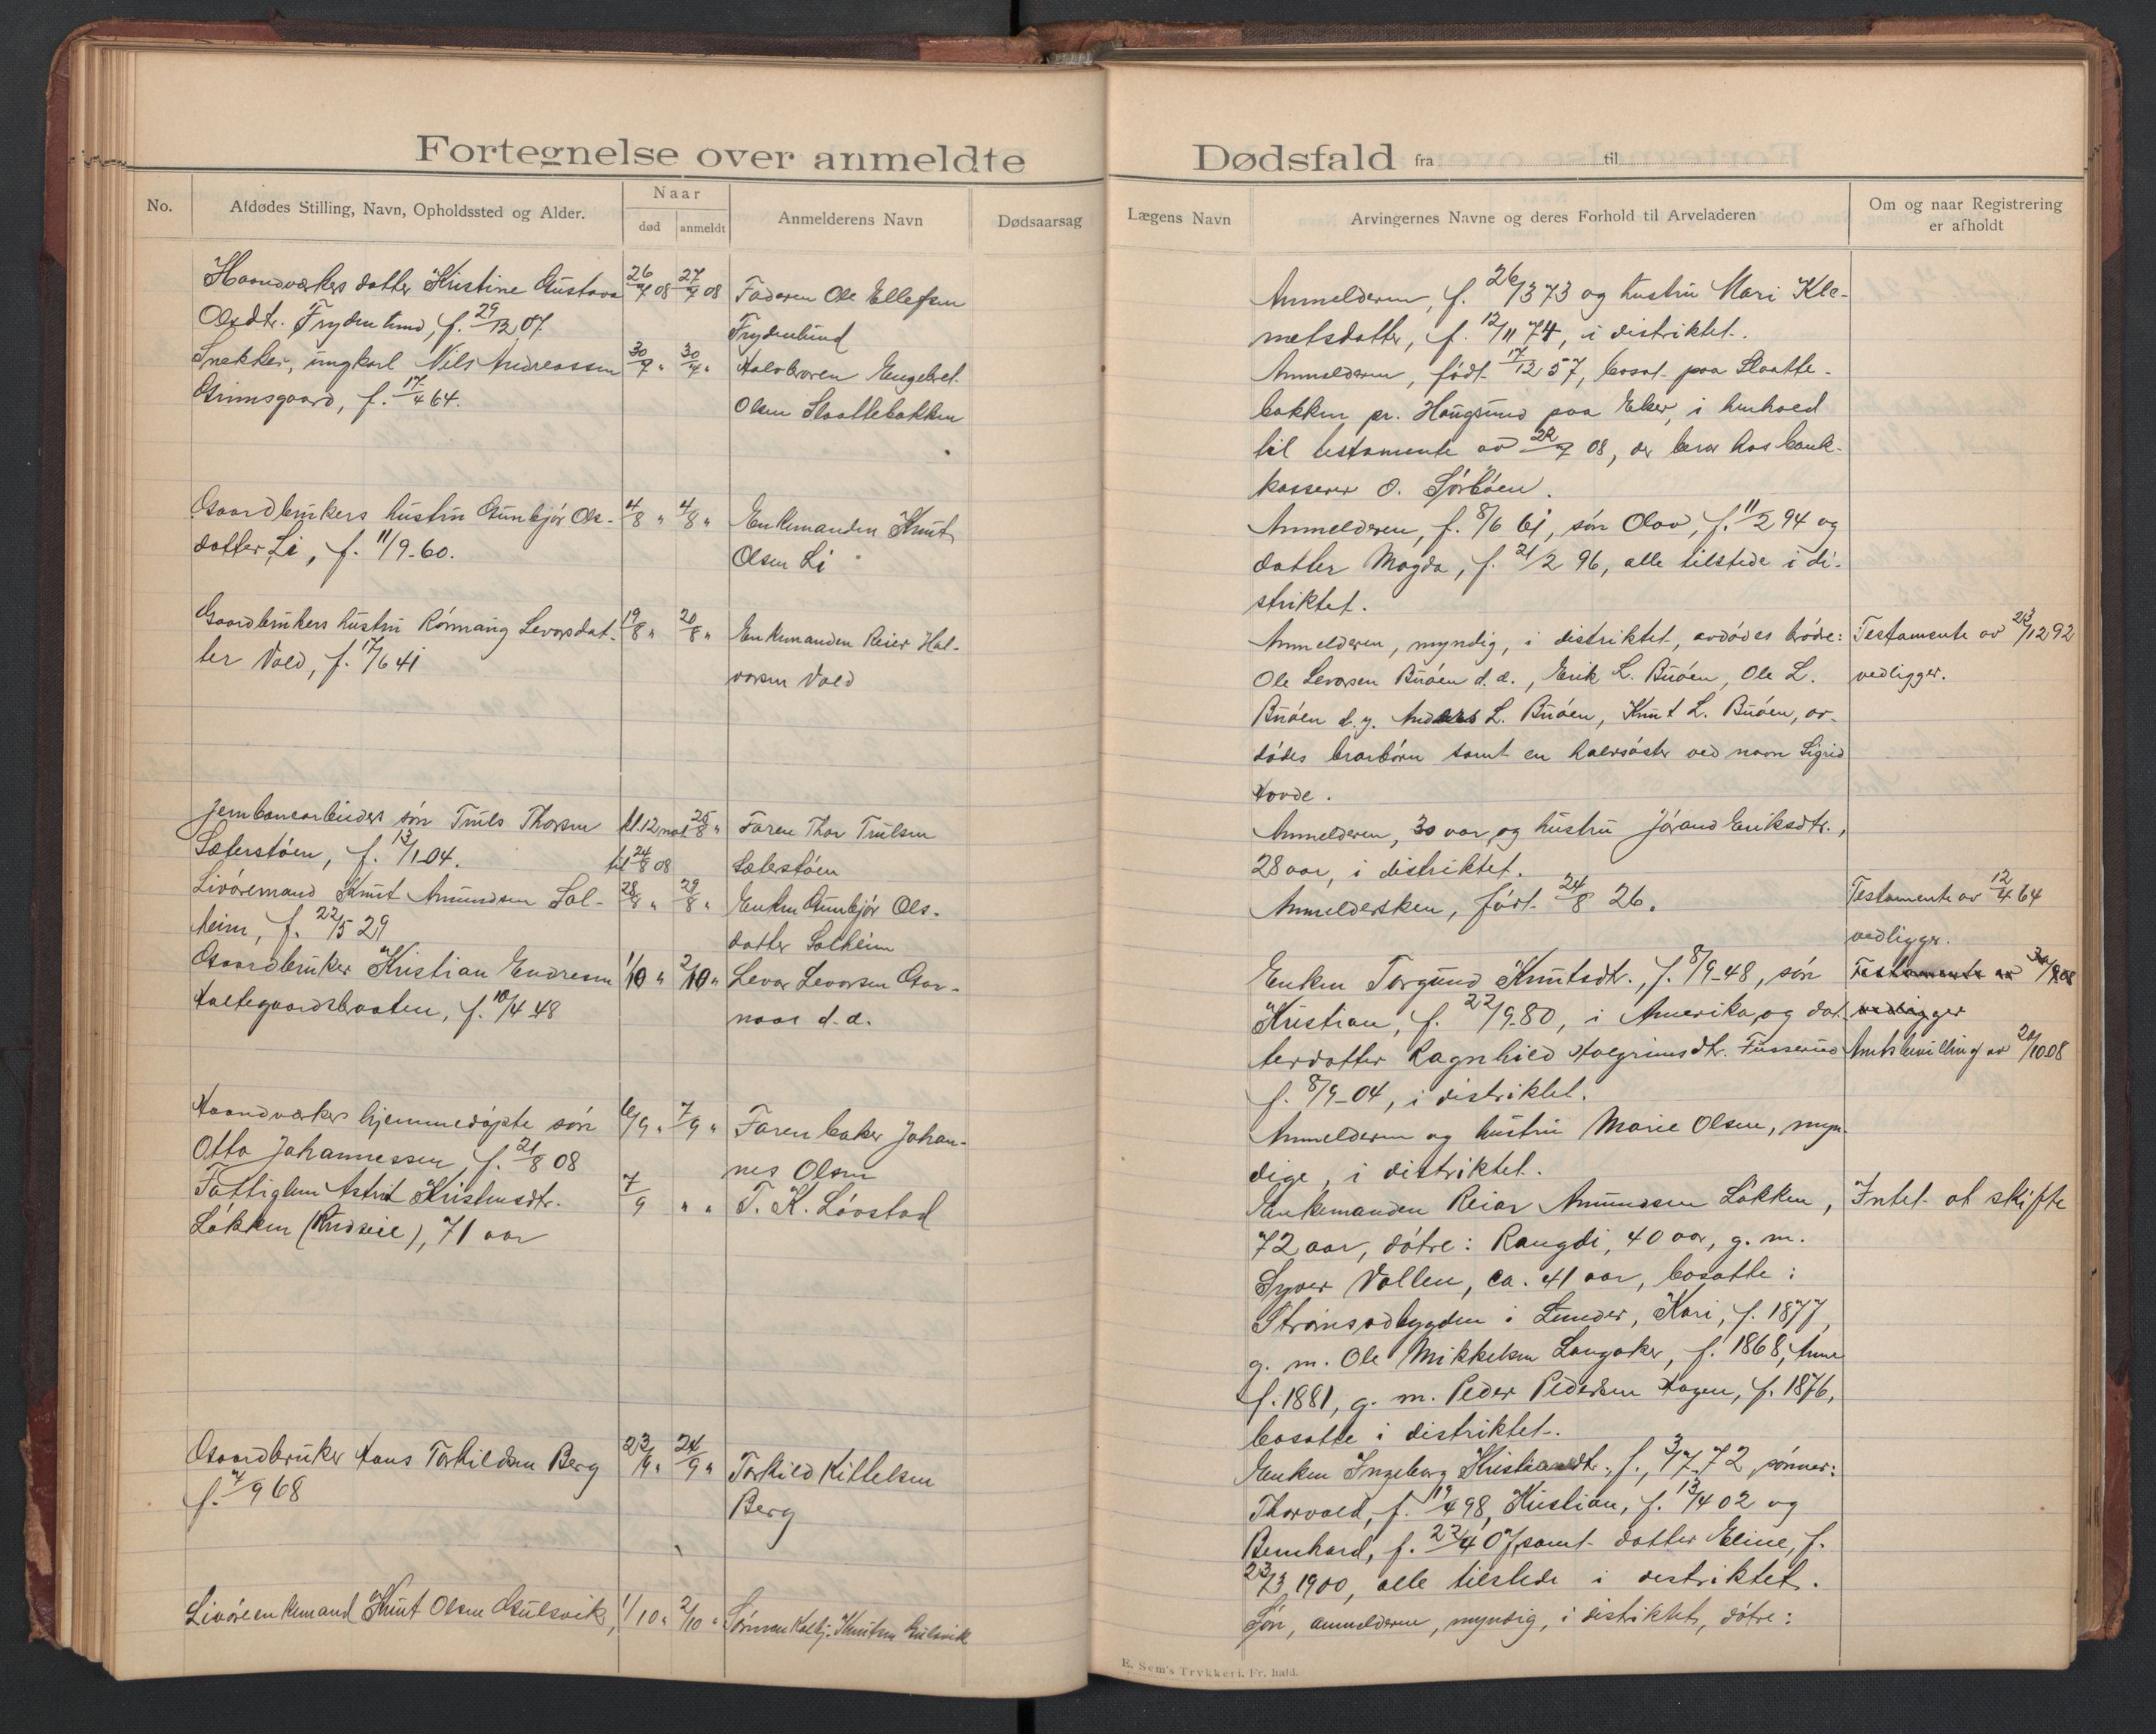 Fortegnelse over anmeldte
No.
Afdødes Stilling, Navn, Opholdssted og Alder.
Naar
død
anmeldt
Anmelderens Navn
Dødsaarsag
Haandværkers datter Kristine Gustava 26/7 08 27/7 08 Faderen Ole Ellefsen
Olsdtr. Frydenlund, f. 29/12 07. Frydenlund
Snekker, ungkarl Nils Andreassen 30/7 " 30/7 " Halvbroren Engebret
Grimsgaard, f. 17/4 64. Olsen Slaattebakken
Gaardbrukers hustru Gunbjør Ols- 4/8 " 4/8 " Enkemanden Knut
datter Li, f. 11/9-60. Olsen Li
Gaardbrukers hustru Rønnaug Levorsdat- 19/8 " 20/8 " Enkemanden Reier Hal-
ter Vold, f. 17/6 41 vorsen Vold
Jernbanearbeiders søn Truls Thorsen kl. 12 nat 25/8 " Faren Thor Trulsen
Sæterstøen, f. 13/1-04. til 24/8 08 Sæterstøen
Livøremand Knut Amundsen Sol- 28/8 " 29/8 " Enken Gunbjør Ols-
heim, f. 22/5 29 datter Solheim
Gaardbruker Kristian Endresen 1/10 " 2/10 " Levor Levorsen Gar-
Haltegaardsbraaten, f. 10/4 48 naas d.æ.
Haandværkers hjemmedøpte søn 6/9 " 7/9 " Faren baker Johan-
Otto Johannessen, f. 21/8 08 nes Olsen
Fattiglem Astrid Kristensdtr. 7/9 " " T. K. Løvstad
Løkken (Rudseie), 71 aar
Gaardbruker Hans Torkildsen Berg 23/9 " 24/9 " Torkild Kittelsen
f. 7/9 68 Berg
Livøreenkemand Knut Olsen Gulsvik, 1/10 " 2/10 " Sønnen Kolbj. Knutsen Gulsvik
Dødsfald fra til
Lægens Navn
Arvingernes Navne og deres Forhold til Arveladeren
Om og naar Registrering
er afholdt
Anmelderen, f. 26/3 73 og hustru Mari Kle-
metsdatter, f. 12/11 74, i distriktet.
Anmelderen, født 17/12 57, bosat paa Slaatte-
bakken pr. Hougsund paa Eker, i henhold
til testamente av 22/7 08, der beror hos bank-
kasserer O. Sørbøen.
Anmelderen, f. 8/6 61, søn Olav, f. 11/2 94 og
datter Magda, f. 21/2 96, alle tilstede i di-
striktet.
Anmelderen, myndig, i distriktet, avdødes brødre: Testamente av 23/12 92
Ole Levorsen Buøen d.æ., Erik L. Buøen, Ole L. vedligger.
Buøen d.y. Anders L. Buøen, Knut L. Buøen, av-
dødes brorbørn samt en halvsøster ved navn Sigrid
Hovde.
Anmelderen, 30 aar, og hustru Jørand Eriksdtr.,
28 aar, i distriktet.
Anmeldersken, født 24/8 26. Testamente av 12/4 64
vedligger.
Enken Torgund Knutsdtr., f. 8/9-48, søn Testamente av 30/8 08
Kristian, f. 22/9-80, i Amerika, og dat- vedligger
terdatter Ragnhild Halgrimsdtr. Fusserud Amtsbevilling av 20/10 08
f. 8/9-04, i distriktet.
Anmelderen og hustru Marie Olsen, myn-
dige, i distriktet.
Enkemanden Reiar Amundsen Løkken, Intet at skifte
72 aar, døtre: Rangdi, 40 aar, g. m.
Syver Vollen, ca. 41 aar, bosatte i
Strømsodbygden i Lunder, Kari, f. 1877,
g. m. Ole Mikkelsen Langaker, f. 1868, Anne
f. 1881, g. m. Peder Pedersen Hagen, f. 1876,
bosatte i distriktet.
Enken Ingeborg Kristiansdtr., f. 3/7-72, sønner:
Thorvald, f. 19/4 98, Kristian, f. 13/4 02 og
Bernhard, f. 22/4 07, samt datter Eline, f.
23/3 1900, alle tilstede i distriktet.
Søn, anmelderen, myndig, i distriktet, døtre:
E. Sem's Trykkeri, Fr. hald.